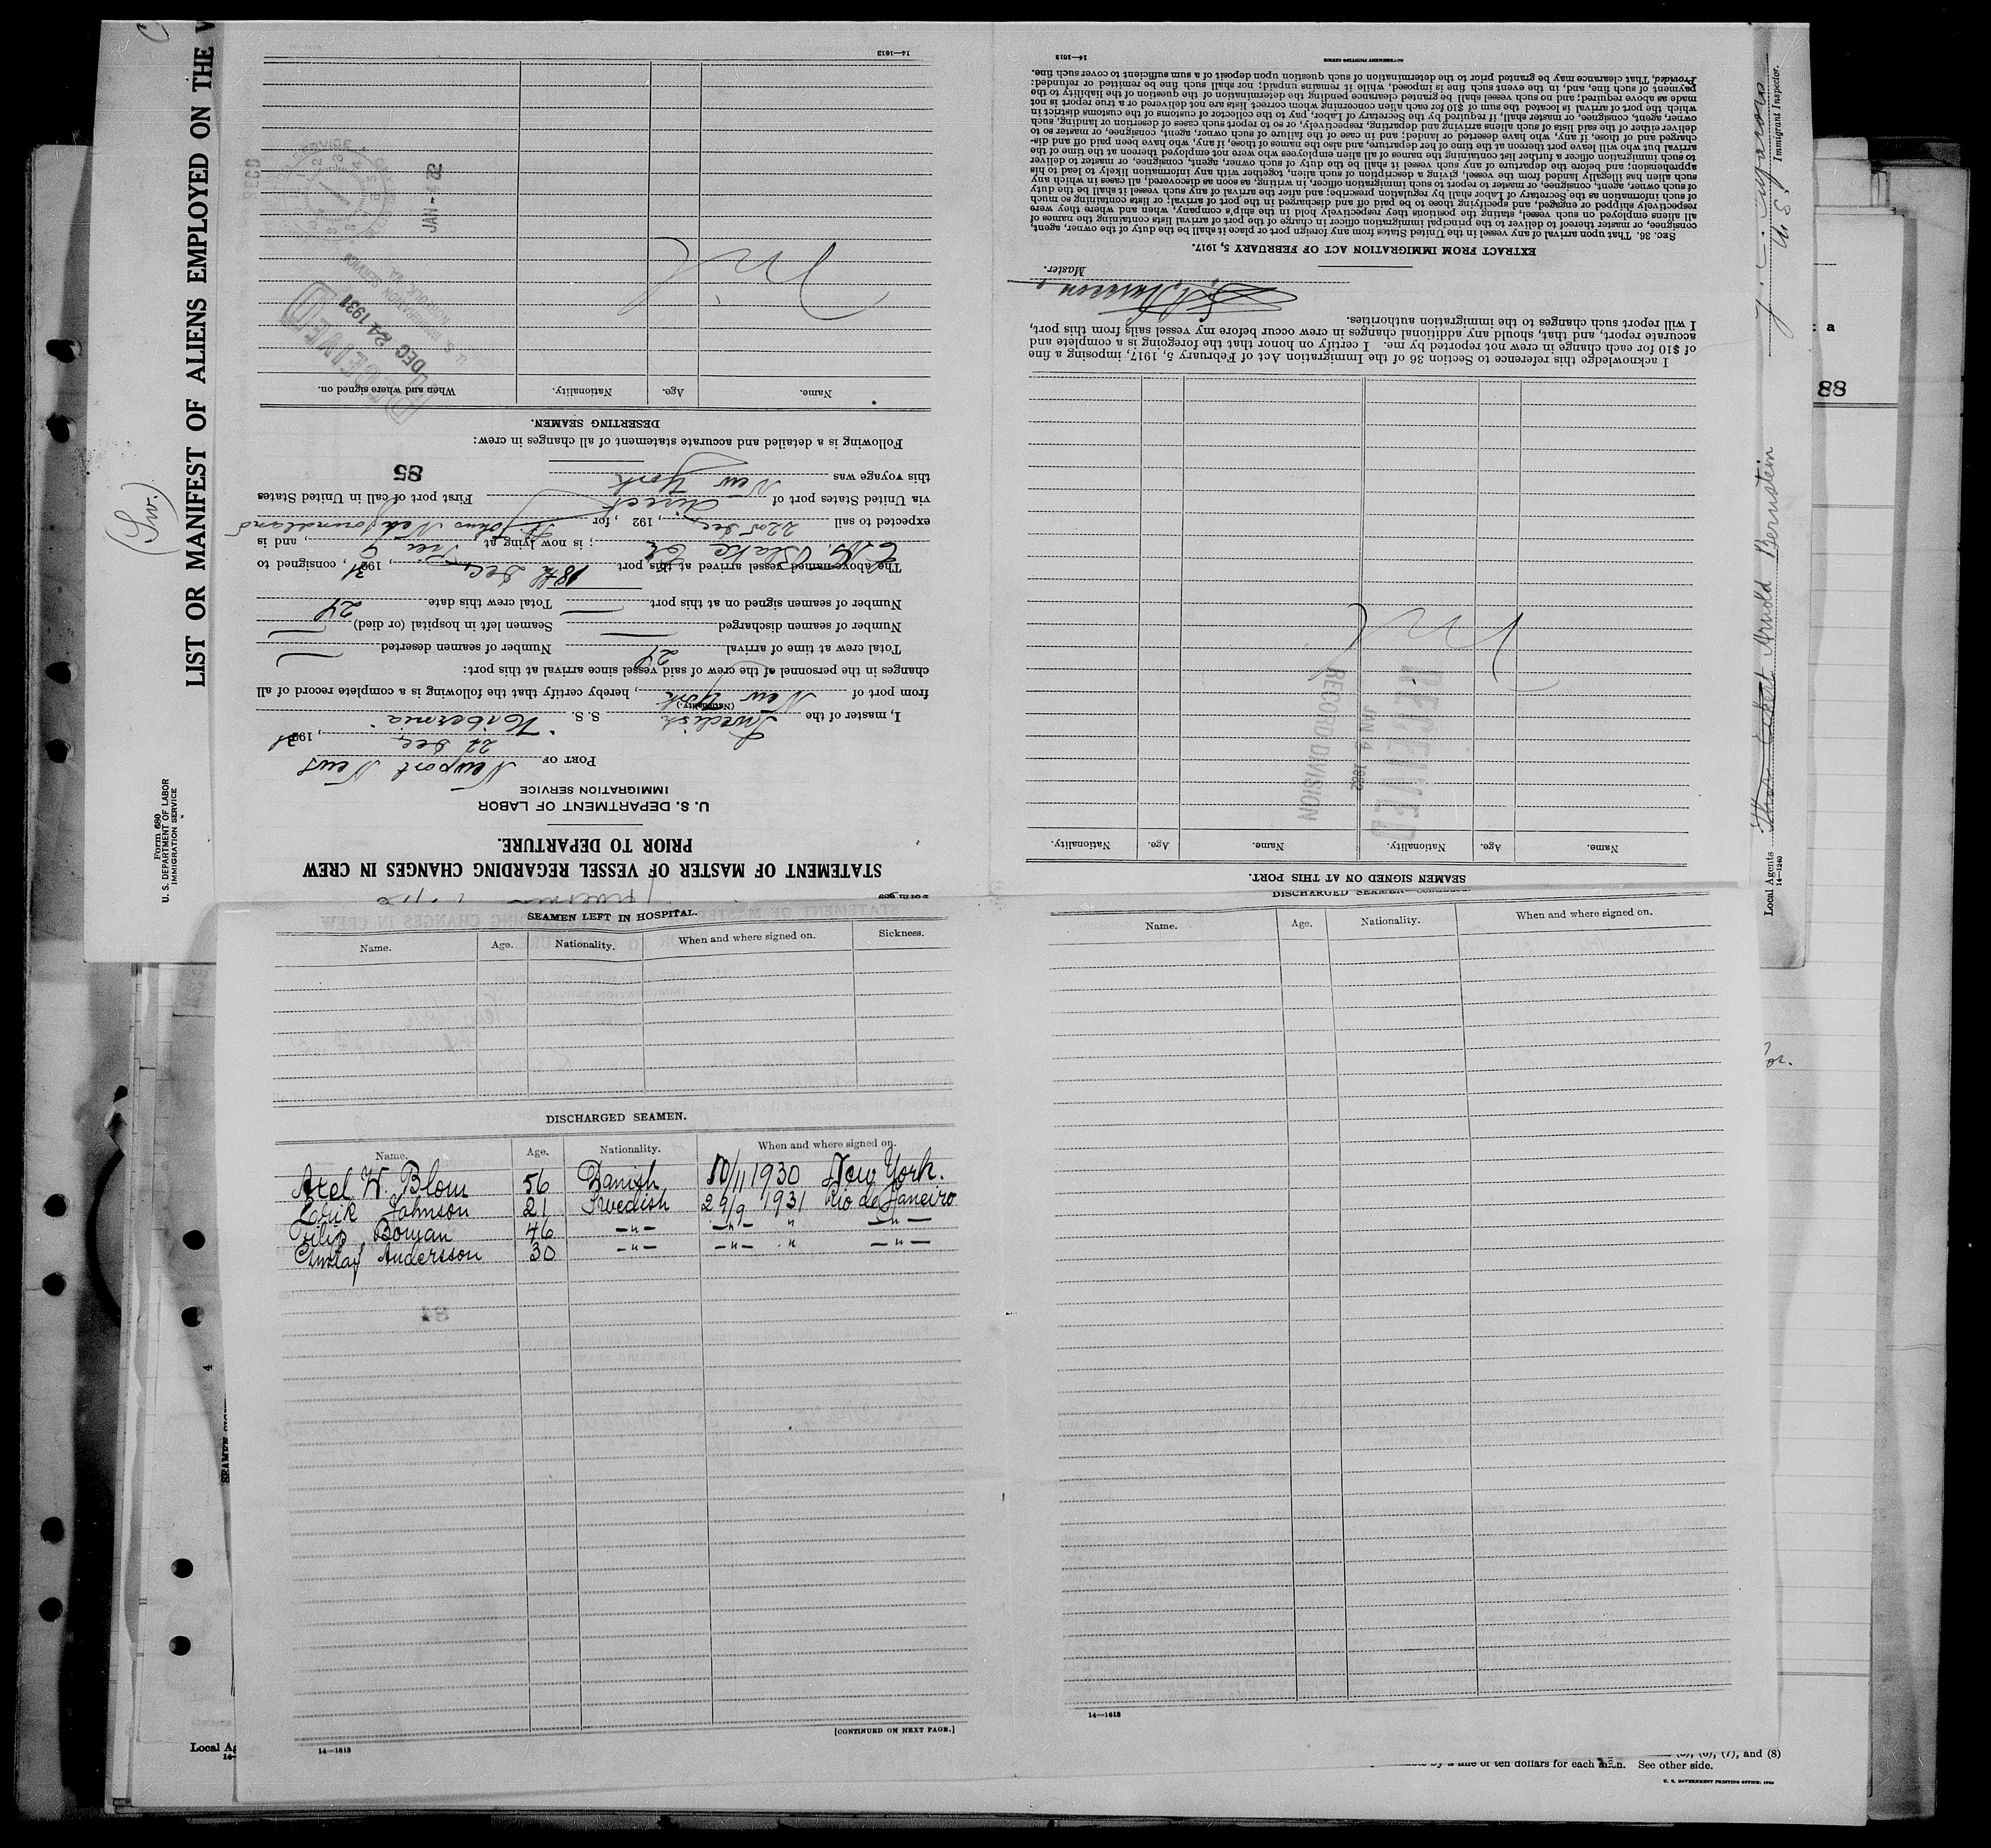 LIST OR MANIFEST OF ALIENS EMPLOYED ON THE
(Sw.)
Form 680
U. S. DEPARTMENT OF LABOR
IMMIGRATION SERVICE
STATEMENT OF MASTER OF VESSEL REGARDING CHANGES IN CREW
PRIOR TO DEPARTURE.
U. S. DEPARTMENT OF LABOR
IMMIGRATION SERVICE
PORT OF Newport News
22 Dec, 1931
I, master of the Swedish S. S. "Korbernia"
(Nationality.)
from port of New York, hereby certify that the following is a complete record of all
changes in the personnel of the crew of said vessel since arrival at this port:
Total crew at time of arrival 24 Number of seamen deserted
Number of seamen discharged Seamen left in hospital (or died)
Number of seamen signed on at this port Total crew this date 24
The above-named vessel arrived at this port 18th Dec, 1931, consigned to
; is now lying at Pier 6, and is
expected to sail 22nd Dec, 192 , for St. Johns Newfoundland
via United States port of direct First port of call in United States
this voyage was New York
85
Following is a detailed and accurate statement of all changes in crew:
DESERTING SEAMEN.
Name. Age. Nationality. When and where signed on.
Nil
RECEIVED
DEC 24 1931
U. S. IMMIGRATION SERVICE
NORFOLK VA.
REC'D
JAN - 4 32
14—1613
SEAMEN SIGNED ON AT THIS PORT.
Name. Age. Nationality. Name. Age. Nationality.
RECEIVED
JAN 4 1932
RECORD DIVISION
Nil
I acknowledge this reference to Section 36 of the Immigration Act of February 5, 1917, imposing a fine
of $10 for each change in crew not reported by me. I certify on honor that the foregoing is a complete and
accurate report, and that, should any additional changes in crew occur before my vessel sails from this port,
I will report such changes to the immigration authorities.
Master.
EXTRACT FROM IMMIGRATION ACT OF FEBRUARY 5, 1917.
SEC. 36. That upon arrival of any vessel in the United States from any foreign port or place it shall be the duty of the owner, agent,
consignee, or master thereof to deliver to the principal immigration officer in charge of the port of arrival lists containing the names of
all aliens employed on such vessel, stating the positions they respectively hold in the ship's company, when and where they were
respectively shipped or engaged, and specifying those to be paid off and discharged in the port of arrival; or lists containing so much
of such information as the Secretary of Labor shall by regulation prescribe; and after the arrival of any such vessel it shall be the duty
of such owner, agent, consignee, or master to report to such immigration officer, in writing, as soon as discovered, all cases in which any
such alien has illegally landed from the vessel, giving a description of such alien, together with any information likely to lead to his
apprehension; and before the departure of any such vessel it shall be the duty of such owner, agent, consignee, or master to deliver
to such immigration officer a further list containing the names of all alien employees who were not employed thereon at the time of the
arrival but who will leave port thereon at the time of her departure, and also the names of those, if any, who have been paid off and dis-
charged and of those, if any, who have deserted or landed; and in case of the failure of such owner, agent, consignee, or master so to
deliver either of the said lists of such aliens arriving and departing, respectively, or so to report such cases of desertion or landing, such
owner, agent, consignee, or master shall, if required by the Secretary of Labor, pay to the collector of customs of the customs district in
which the port of arrival is located the sum of $10 for each alien concerning whom correct lists are not delivered or a true report is not
made as above required; and no such vessel shall be granted clearance pending the determination of the question of the liability to the
payment of such fine, and, in the event such fine is imposed, while it remains unpaid; nor shall such fine be remitted or refunded:
Provided, That clearance may be granted prior to the determination of such question upon deposit of a sum sufficient to cover such fine.
GOVERNMENT PRINTING OFFICE
14—1613
Immigrant Inspector.
Local Agents Arnold Bernstein
14—1240
88
SEAMEN LEFT IN HOSPITAL.
Name. Age. Nationality. When and where signed on. Sickness.
DISCHARGED SEAMEN.
Name. Age. Nationality. When and where signed on.
Axel W. Blom 56 Danish 10/11 1930 New York.
Erik Johnson 21 Swedish 29/9 1931 Rio de Janeiro
Filip Boman 46 —"— —"— " —"—
Gustaf Andersson 30 —"— —"— " —"—
[CONTINUED ON NEXT PAGE.]
14—1613
DISCHARGED SEAMEN
Name. Age. Nationality. When and where signed on.
14—1613
Local Ag
(7), and (8)
by a fine of ten dollars for each alien. See other side.
U. S. GOVERNMENT PRINTING OFFICE